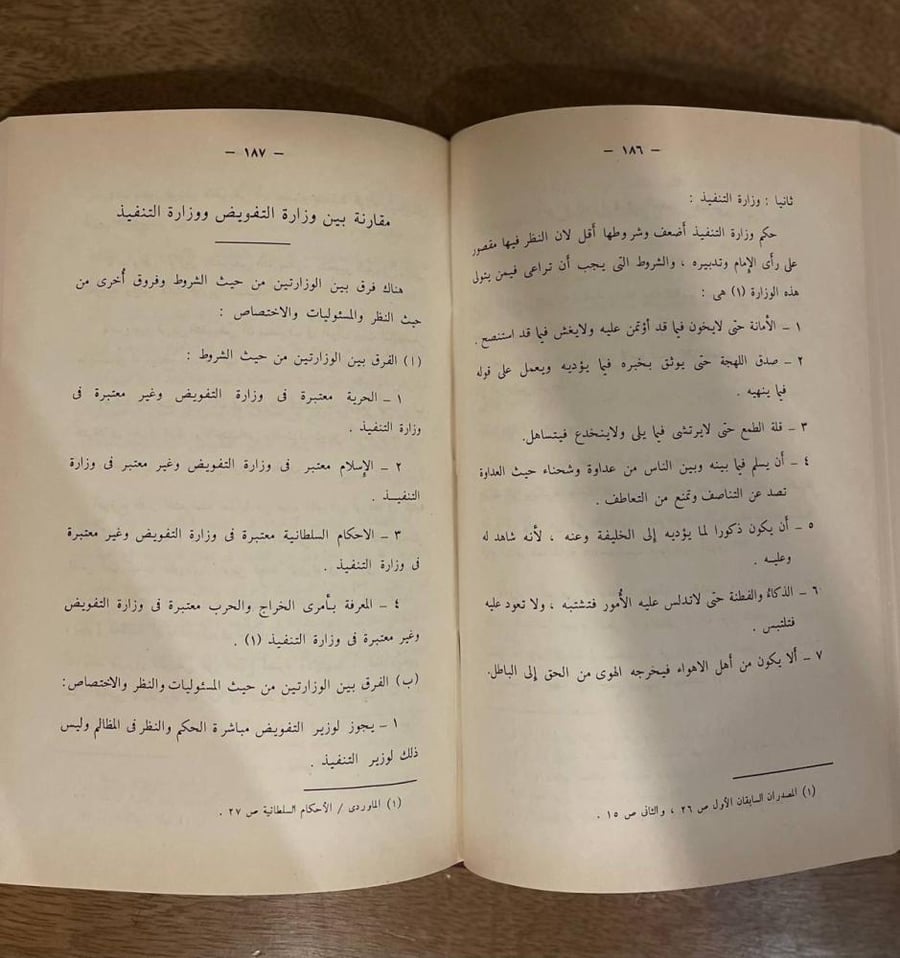 — ١٨٦ —
ثانيا : وزارة التنفيذ :
حكم وزارة التنفيذ أضعف وشروطها أقل لان النظر فيها مقصور
على رأى الإمام وتدبيره ، والشروط التى يجب أن تراعى فيمن يتولى
هذه الوزارة (١) هى :
١ – الأمانة حتى لايخون فيما قد أؤتمن عليه ولايغش فيما قد استنصح .
٢ – صدق اللهجة حتى يوثق بخبره فيما يؤديه ويعمل على قوله
فيما ينهيه .
٣ – قلة الطمع حتى لايرتشى فيما يلى ولاينخدع فيتساهل.
٤ – أن يسلم فيما بينه وبين الناس من عداوة وشحناء حيث العداوة
تصد عن التناصف وتمنع من التعاطف .
٥ – أن يكون ذكورا لما يؤديه إلى الخليفة وعنه ، لأنه شاهد له
وعليه .
٦ – الذكاء والفطنة حتى لاتدلس عليه الأُمور فتشتبه ، ولا تعود عليه
فتلتبس .
٧ – ألا يكون من أهل الاهواء فيخرجه الهوى من الحق إلى الباطل.
(١) المصدران السابقان الأول ص ٢٦ ، والثانى ص ١٥ .
— ١٨٧ —
مقارنة بين وزارة التفويض ووزارة التنفيذ
هناك فرق بين الوزارتين من حيث الشروط وفروق أُخرى من
حيث النظر والمسئوليات والاختصاص :
(ا) الفرق بين الوزارتين من حيث الشروط :
١ – الحرية معتبرة فى وزارة التفويض وغير معتبرة فى
وزارة التنفيذ .
٢ – الإسلام معتبر فى وزارة التفويض وغير معتبر فى وزارة
التنفيذ .
٣ – الاحكام السلطانية معتبرة فى وزارة التفويض وغير معتبرة
فى وزارة التنفيذ .
٤ – المعرفة بأمرى الخراج والحرب معتبرة فى وزارة التفويض
وغير معتبرة فى وزارة التنفيذ (١) .
(ب) الفرق بين الوزارتين من حيث المسئوليات والنظر والاختصاص:
١ – يجوز لوزير التفويض مباشرة الحكم والنظر فى المظالم وليس
ذلك لوزير التنفيذ .
(١) الماوردى / الأحكام السلطانية ص ٢٧ .